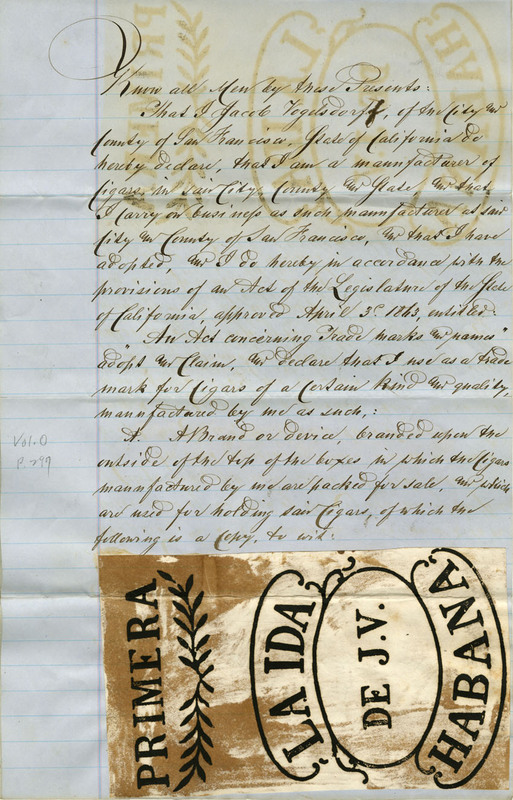 Know all Men by these Presents:
That I Jacob Vogelsdorff, of the City &
County of San Francisco, State of California do
hereby declare, that I am a manufacturer of
Cigars in said City, County & State, & that
I carry on business as such manufacturer at said
City & County of San Francisco, & that I have
adopted, & I do hereby in accordance with the
provisions of an Act of the Legislature of the State
of California, approved April 3d 1863, entitled:
"An Act concerning Trade marks & names"
adopt & Claim, & declare that I use as a trade
mark for Cigars of a Certain kind & quality,
manufactured by me as such,:
A. A Brand or device, branded upon the
outside of the top of the boxes in which the Cigars
manufactured by me are packed for sale, & which
are used for holding said Cigars, of which the
following is a Copy, to wit:
Vol. O
P. 299
PRIMERA
LA IDA
DE J.V.
HABANA